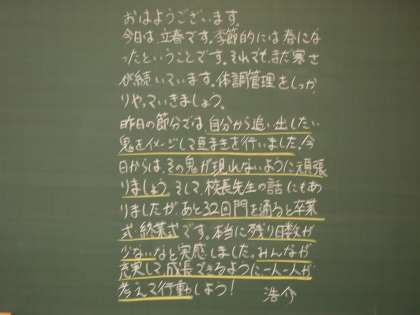 おはようございます。
今日は、立春です。季節的には春にな
ったということです。それでも、まだ寒さ
が続いています。体調管理をしっか
りやっていきましょう。
昨日の節分では、自分から追い出したい
鬼をイメージして豆まきを行いました。今
日からは、その鬼が現れないように頑張
りましょう。そして、校長先生の話にもあ
りましたが、あと32回門を通ると卒業
式、終業式です。本当に残り日数が
少ないなと実感しました。みんなが
充実して成長できるように一人一人が
考えて行動しよう!